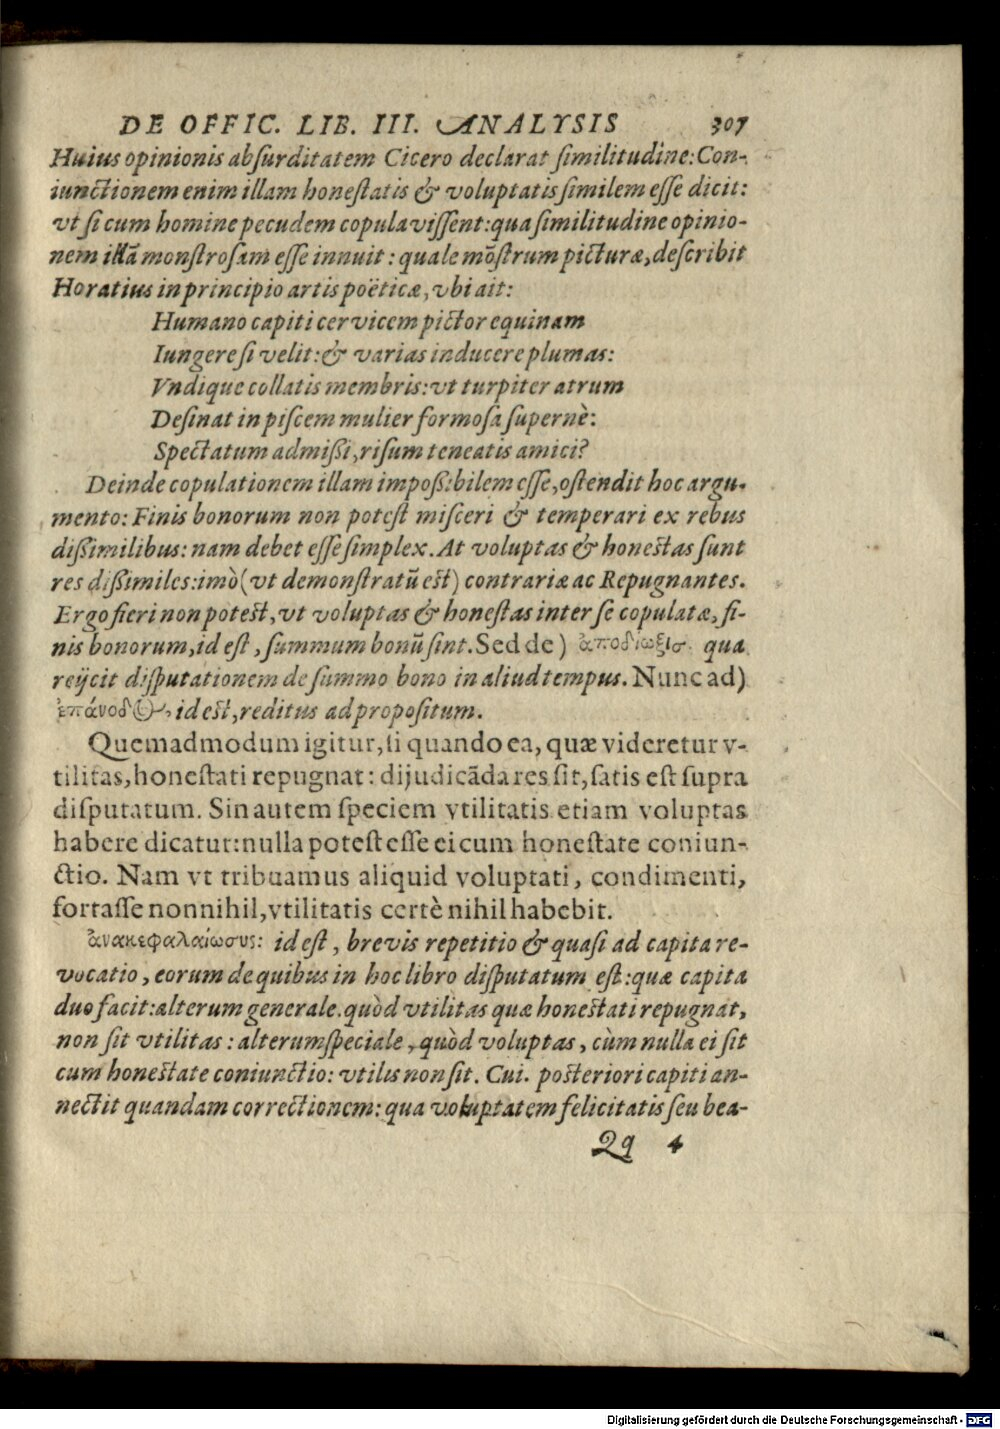 DE OFFIC. LIB. III. ANALYSIS 307
Huius opinionis abſurditatem Cicero declarat ſimilitudine: Con-
iunctionem enim illam honeſtatis & voluptatis ſimilem eſſe dicit:
vt ſi cum homine pecudem copulaviſſent: qua ſimilitudine opinio-
nem illā monſtroſam eſſe innuit: quale mōſtrum picturæ, deſcribit
Horatius in principio artis poëticæ, vbi ait:
Humano capiti cervicem pictor equinam
Iungere ſi velit: & varias inducere plumas:
Vndique collatis membris: vt turpiter atrum
Deſinat in piſcem mulier formoſa ſupernè:
Spectatum admißi, riſum teneatis amici?
Deinde copulationem illam impoßibilem eſſe, oſtendit hoc argu-
mento: Finis bonorum non poteſt miſceri & temperari ex rebus
dißimilibus: nam debet eſſe ſimplex. At voluptas & honeſtas ſunt
res dißimiles: imò (vt demonſtratū eſt) contrariæ ac Repugnantes.
Ergo fieri non poteſt, vt voluptas & honeſtas inter ſe copulatæ, fi-
nis bonorum, id eſt, ſummum bonū ſint. Sed de) ἀποδίωξις qua
reijcit diſputationem de ſummo bono in aliud tempus. Nunc ad)
ἐπάνοδος, id eſt, reditus ad propoſitum.
Quemadmodum igitur, ſi quando ea, quæ videretur v-
tilitas, honeſtati repugnat: dijudicāda res ſit, ſatis eſt ſupra
diſputatum. Sin autem ſpeciem vtilitatis etiam voluptas
habere dicatur: nulla poteſt eſſe ei cum honeſtate coniun-
ctio. Nam vt tribuamus aliquid voluptati, condimenti,
fortaſſe nonnihil, vtilitatis certè nihil habebit.
ἀνακεφαλαίωσις: id eſt, brevis repetitio & quaſi ad capita re-
vocatio, eorum de quibus in hoc libro diſputatum eſt: quæ capita
duo facit: alterum generale. quòd vtilitas quæ honeſtati repugnat,
non ſit vtilitas: alterum ſpeciale, quòd voluptas, cùm nulla ei ſit
cum honeſtate coniunctio: vtilis non ſit. Cui. poſteriori capiti an-
nectit quandam correctionem: qua voluptatem felicitatis ſeu bea-
Qq 4
Digitalisierung gefördert durch die Deutsche Forschungsgemeinschaft - DFG